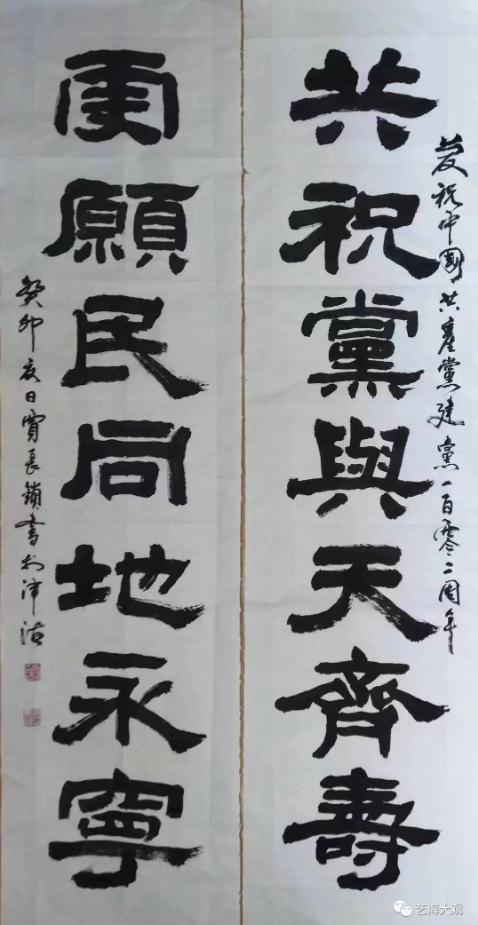 慶祝中國共產黨建黨一百零二周年
共祝黨與天齊壽
更願民同地永寧
癸卯夏日賈長鎖書於津沽
艺海大观